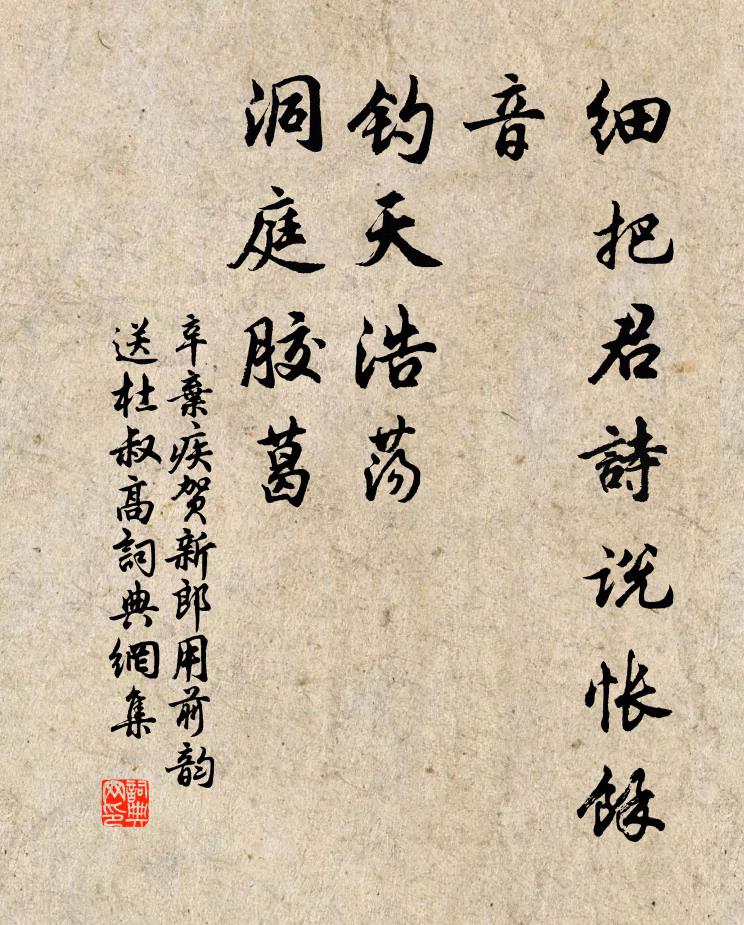 细把君詩说怅餘
音
钧天浩荡
洞庭胶葛
辛棄疾贺新郎用前韵
送杜叔高詞典網集
詞典网印